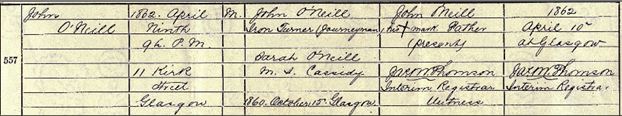 557
John
O'Neill
1862. April
Ninth
9h. P.M.
11 Kirk
Street
Glasgow
M.
John O'Neill
Iron Turner (Journeyman)
Sarah O'Neill
M. S. Cassidy
1860. October 15th Glasgow
John O'Neill
his x mark Father
(present)
Thomson
Interim Registrar
Witness
1862
April 10th
at Glasgow
Thomson
Interim Registrar